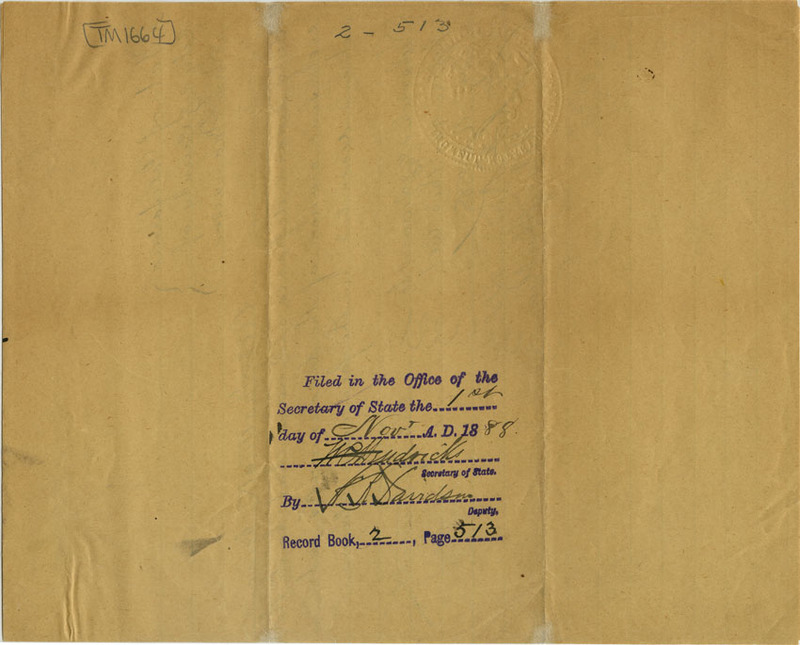 [TM1664]
2 - 513
Filed in the Office of the
Secretary of State the 1st
day of Novr A. D. 1888.
W C Hendricks
Secretary of State.
By Davidson
Deputy.
Record Book, 2, Page 513